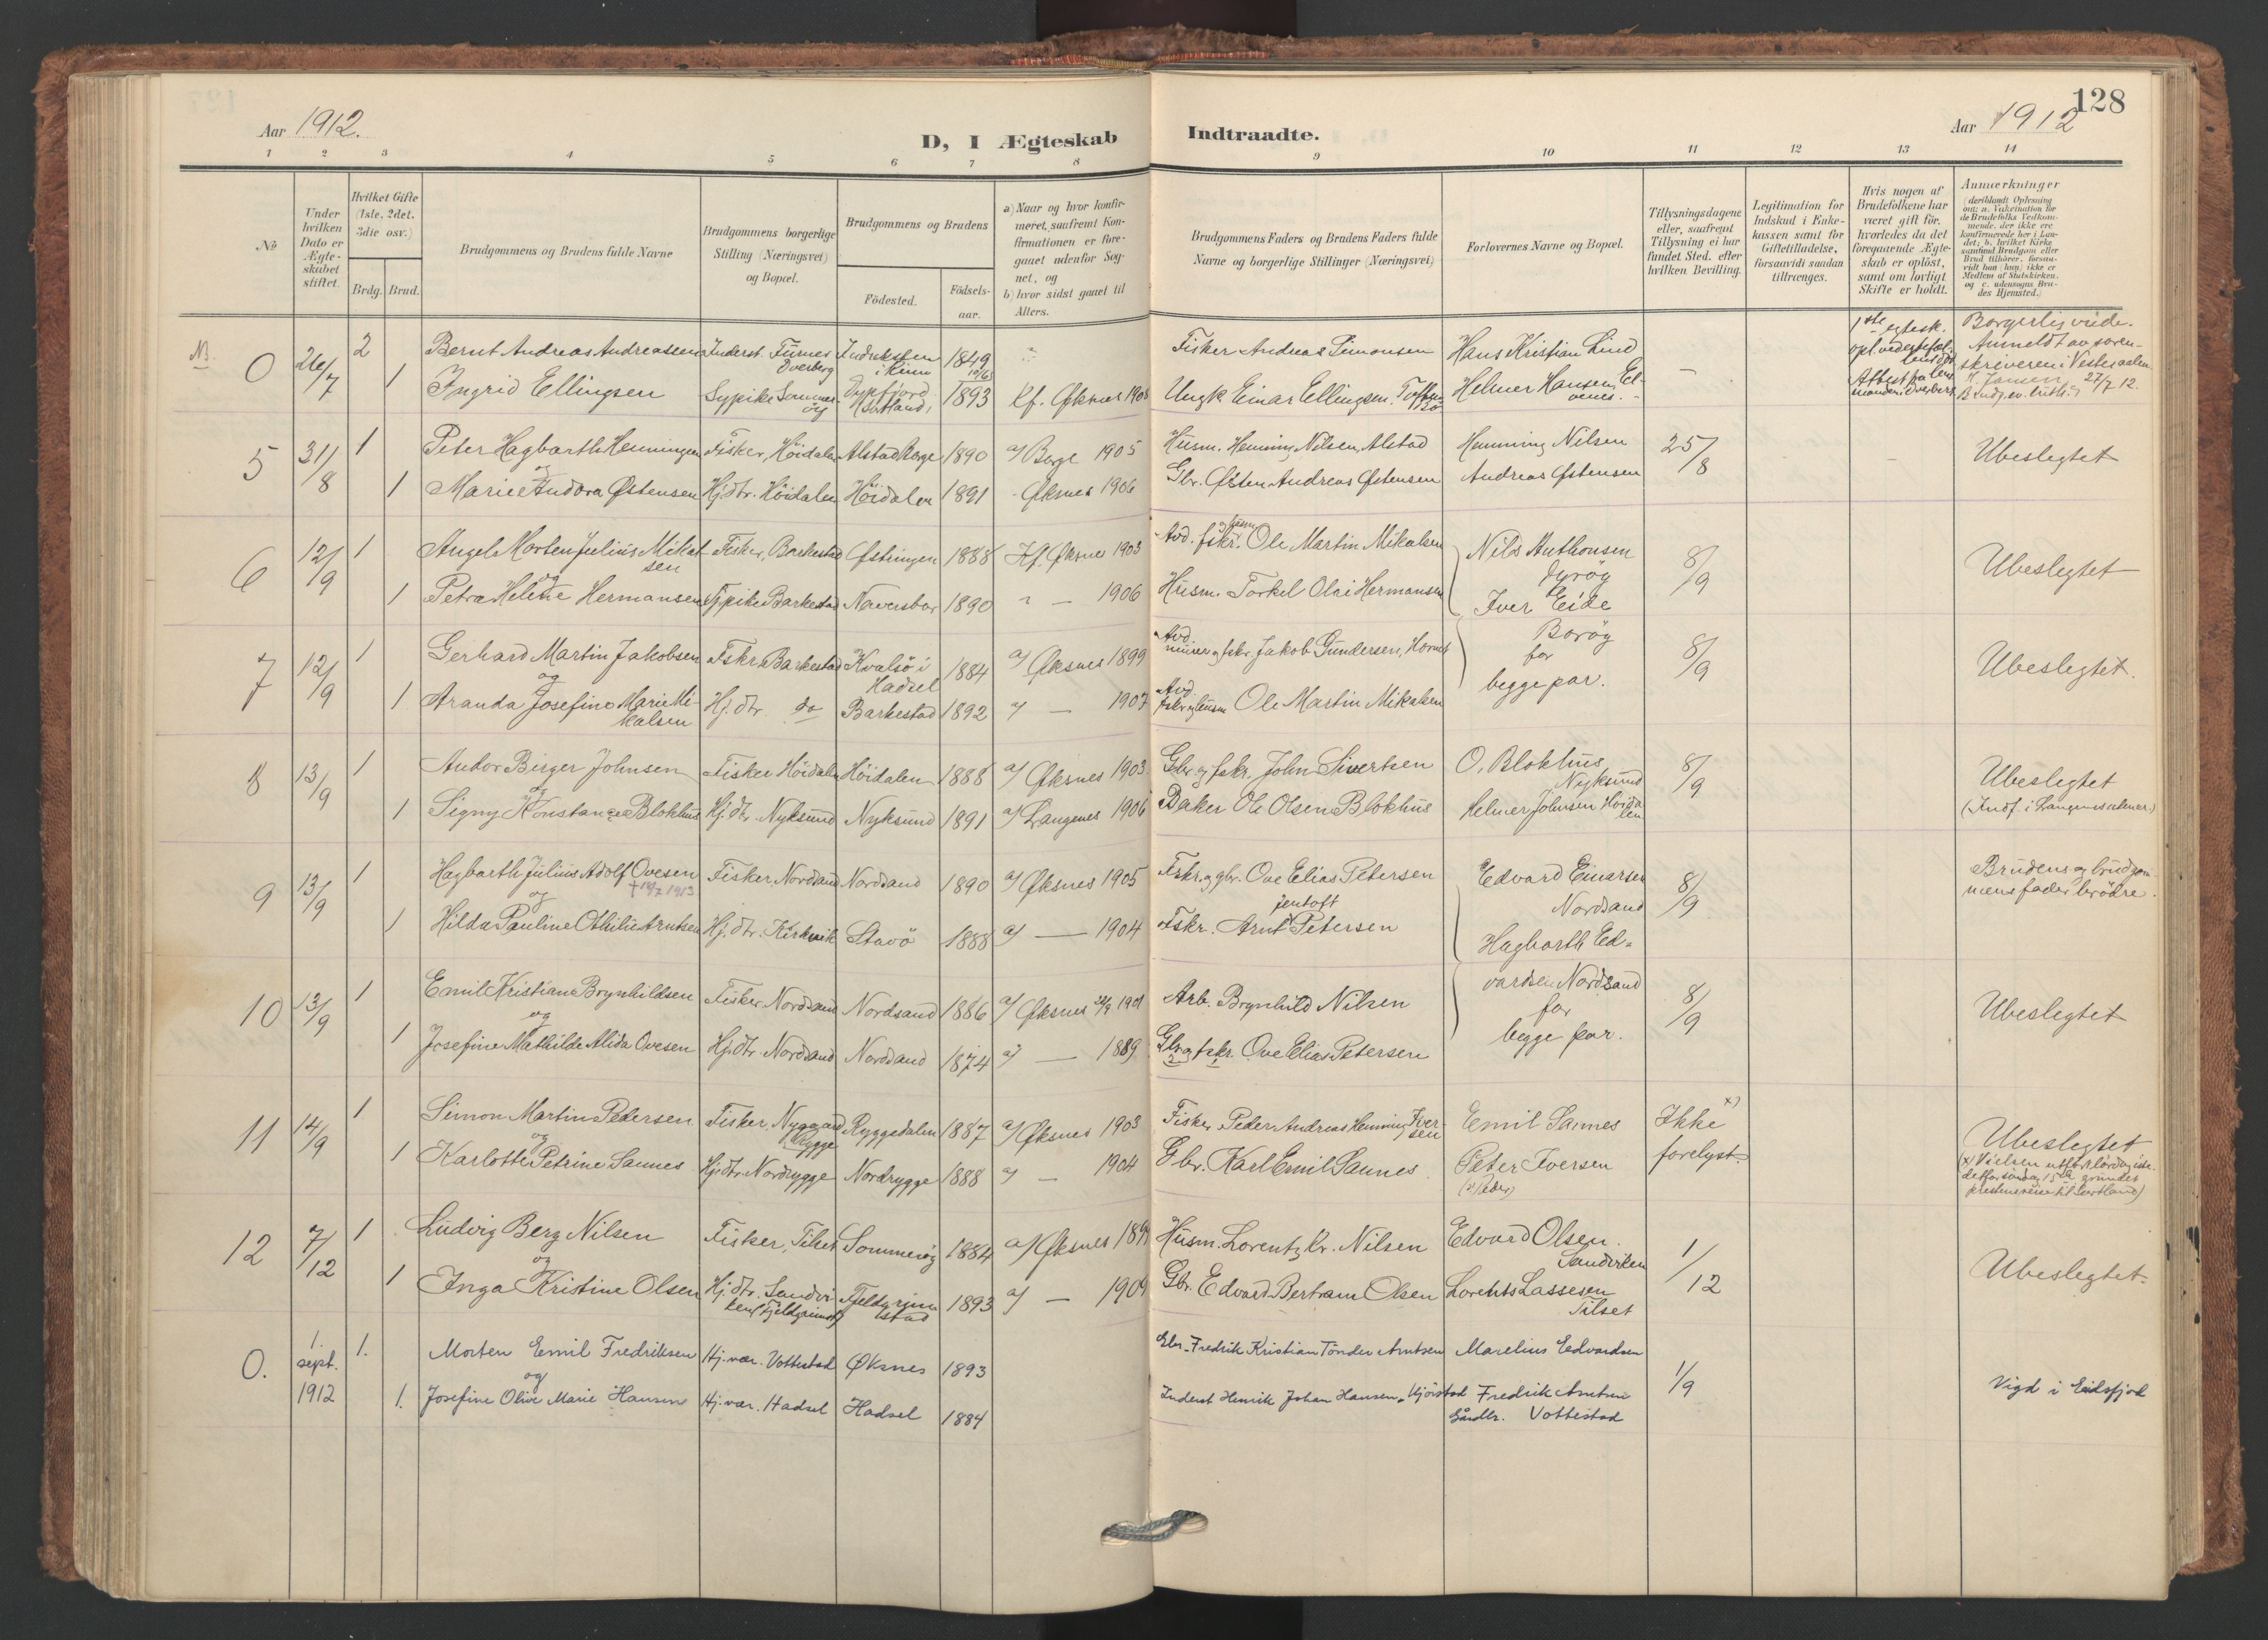 128
Aar 1912.
D, I Ægteskab Indtraadte.
Aar 1912
1 2 3 4 5 6 7 8 9 10 11 12 13 14
No
Under hvilken Dato er Ægteskabet stiftet.
Hvilket Gifte (1ste, 2det, 3die osv.)
Brdg. Brud.
Brudgommens og Brudens fulde Navne
Brudgommens borgerlige Stilling (Næringsvei) og Bopæl.
Brudgommens og Brudens
Födested.
Födsels-aar.
a) Naar og hvor konfirmeret, saafremt Konfirmationen er foregaaet udenfor Sognet, og
b) hvor sidst gaaet til Alters.
Brudgommens Faders og Brudens Faders fulde Navne og borgerlige Stillinger (Næringsvei)
Forlovernes Navne og Bopæl.
Tillysningsdagene eller, saafremt Tillysning ei har fundet Sted, efter hvilken Bevilling.
Legitimation for Indskud i Enkekassen samt for Giftetilladelse, forsaavidt saadan tiltrænges.
Hvis nogen af Brudefolkene har været gift för, hvorledes da det foregaaende Ægteskab er oplöst, samt om lovligt Skifte er holdt.
Anmærkninger (deriblandt Oplysning om: a. Vakcination for de Brudefolks Vedkommende, der ikke ere konfirmerede her i Landet; b. hvilket Kirkesamfund Brudgom eller Brud tilhörer, forsaavidt han (hun) ikke er Medlem af Statskirken, og c. udensogns Brudes Hjemsted.)
NB. 0 26/7 2 Bernt Andreas Andreassen Inderst. Furnes Dverberg 1849 Fisker Andreas Simonsen Hans Kristian Lind
1 Ingrid Ellingsen Sypike Sommerøy Dypfjord (Sortland) 1893 Kf. Øksnes 1908 Ungk. Einar Ellingsen Helmer Hansen
Borgerlig viede. Anmeldt av sorenskriveren i Vesteraalen 27/7 12.
5 31/8 1 Peter Hagbarth Henningsen Fisker, Höidalen Alstad Borge 1890 a/ Borge 1905 Husm. Henning Nilsen, Alstad Henning Nilsen 25/8 Ubeslegtet
og
1 Marie Andora Østensen Hj.dtr. Höidalen Höidalen 1891 Øksnes 1906 Gbr. Østen Andreas Østensen Andreas Østensen
6 12/9 1 Angel Morten Julius Mikalsen Fisker, Barkestad Østningen 1888 Kf. Øksnes 1903 Avd. fskr. og husm. Ole Martin Mikalsen Nils Anthonsen Dyrøy 8/9 Ubeslegtet
og
1 Petra Helene Hermansen Sypike Barkestad 1890 " — 1906 Husm. Torkel Olai Hermansen Iver Eide
7 12/9 1 Gerhard Martin Jakobsen Fskr. Barkestad Kvalsö i Hadsel 1884 a/ Øksnes 1899 Jakob Gundersen, Barøy for begge par. 8/9 Ubeslegtet.
og
1 Aranda Josefine Marie Mikalsen Hj.dtr. do Barkestad 1892 a/ — 1907 Avd. fskr. og husm. Ole Martin Mikalsen
8 13/9 1 Andor Birger Johnsen Fisker Höidalen Höidalen 1888 a/ Øksnes 1903 Gbr. og fskr. John Sivertsen O. Blokhus, Nyksund 8/9 Ubeslegtet
og
1 Signy Konstance Blokhus Hj.dtr. Nyksund Nyksund 1891 a/ Langenes 1906 Baker Ole Olsen Blokhus Helmer Johnsen Höidalen
9 13/9 1 Hagbarth Julius Adolf Ovesen Fisker, Nordsand Nordsand 1890 a/ Øksnes 1905 Fskr. og gbr. Ove Elias Petersen Edvard Einarsen Nordsand 8/9 Brudens og brudgommens fader brödre.
og
1 Hilda Pauline Othilie Arntsen Hj.dtr. Kirkvik Stavö 1888 a/ — 1904 Fskr. Arnt Jentoft Petersen Hagbarth Edvardsen Nordsand for begge par.
10 13/9 1 Emil Kristian Brynhildsen Fisker Nordsand Nordsand 1886 a/ Øksnes 1901 Arb. Brynhild Nilsen 8/9 Ubeslegtet
og
1 Josefine Mathilde Alida Ovesen Hj.dtr. Nordsand Nordsand 1874 a/ — 1889 Gbr. og fskr. Ove Elias Petersen
11 14/9 1 Simon Martin Pedersen Fisker, Nygaard Rygge Ryggedalen 1887 a/ Øksnes 1903 Fisker Peder Andreas Henning Iversen Emil Sannes Ikke x) forelyst. Ubeslegtet
og
1 Karlotte Petrine Sannes Hj.dtr. Nordrygge Nordrygge 1888 a/ — 1904 Gbr. Karl Emil Sannes Peter Iversen (x: Peder)
(x) Vielsen utfört lördag istedetfor söndag 15de grundet prestens reise til Sortland)
12 7/12 1 Ludvig Berg Nilsen Fisker, Tilset Sommerøy 1884 a/ Øksnes 1899 Husm. Lorentz Kr. Nilsen Edvard Olsen Sandviken 1/12 Ubeslegtet.
og
1 Inga Kristine Olsen Hj.dtr. Sandviken 1893 a/ — 1909 Gbr. Edvard Bertram Olsen Lorents Lassesen Tilset
0. 1. sept. 1912 1. Morten Emil Fredriksen Hj.vær. Vottestad Øksnes 1893 Gbr. Fredrik Kristian Tönder Arntsen Marelius Edvardsen 1/9 Vigd i Eidsfjord
og
1. Josefine Olive Marie Hansen Hj.vær. Hadsel Hadsel 1884 Inderst Henrik Johan Hansen, Kjörstad Fredrik Arntsen Gårdbr. Vottestad